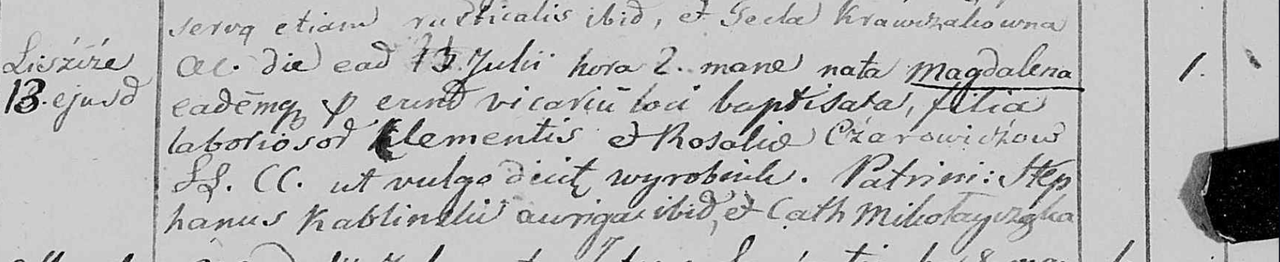 servq etiam rusticalis ibid, et Tecla Krawczakowna
Lieźźie CC. die ead 13. Julii hora 2. mane nata Magdalena 1.
13. ejusd eadēmq p eund vicariū loci baptisata, filia
laboriosor Klementis et Rosalie Czarowiczow
LL. CC. ut vulgo dicit wyrobnik. Patrini: Step
hanus Kablinski auriga ibid, et Cath Mikołayczka